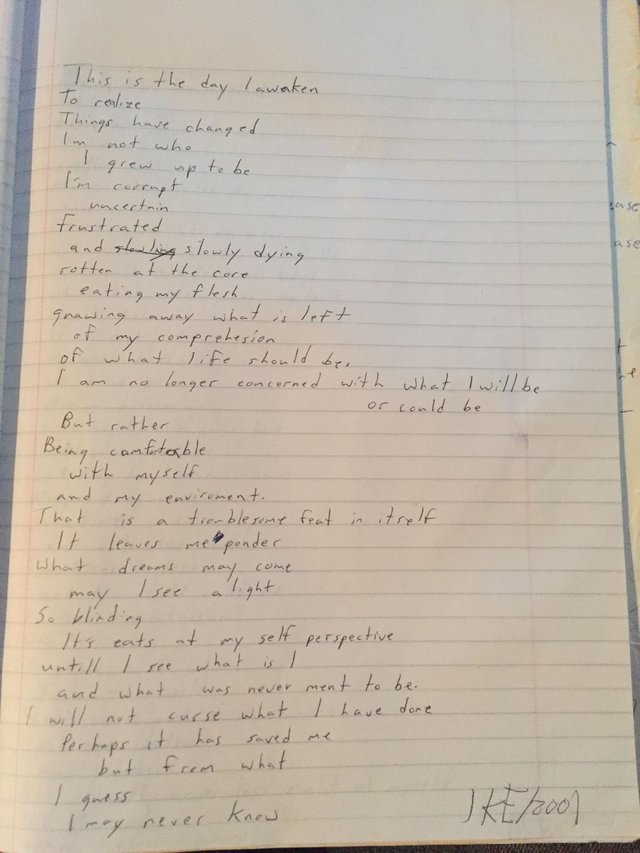 This is the day I awaken
To realize
Things have changed
I'm not who
I grew up to be
I'm corrupt
uncertain
frustrated
and slowly dying
rotten at the core
eating my flesh
gnawing away what is left
of my comprehesion
of what life should be.
I am no longer concerned with what I will be
or could be
But rather
Being comfortable
with myself
and my enviroment.
That is a troublesome feat in itself
It leaves me ponder
What dreams may come
may I see a light
So blinding
It's eats at my self perspective
untill I see what is I
and what was never ment to be.
I will not curse what I have done
Perhaps it has saved me
but from what
I guess
I may never know
JKE/2001
ase
ase